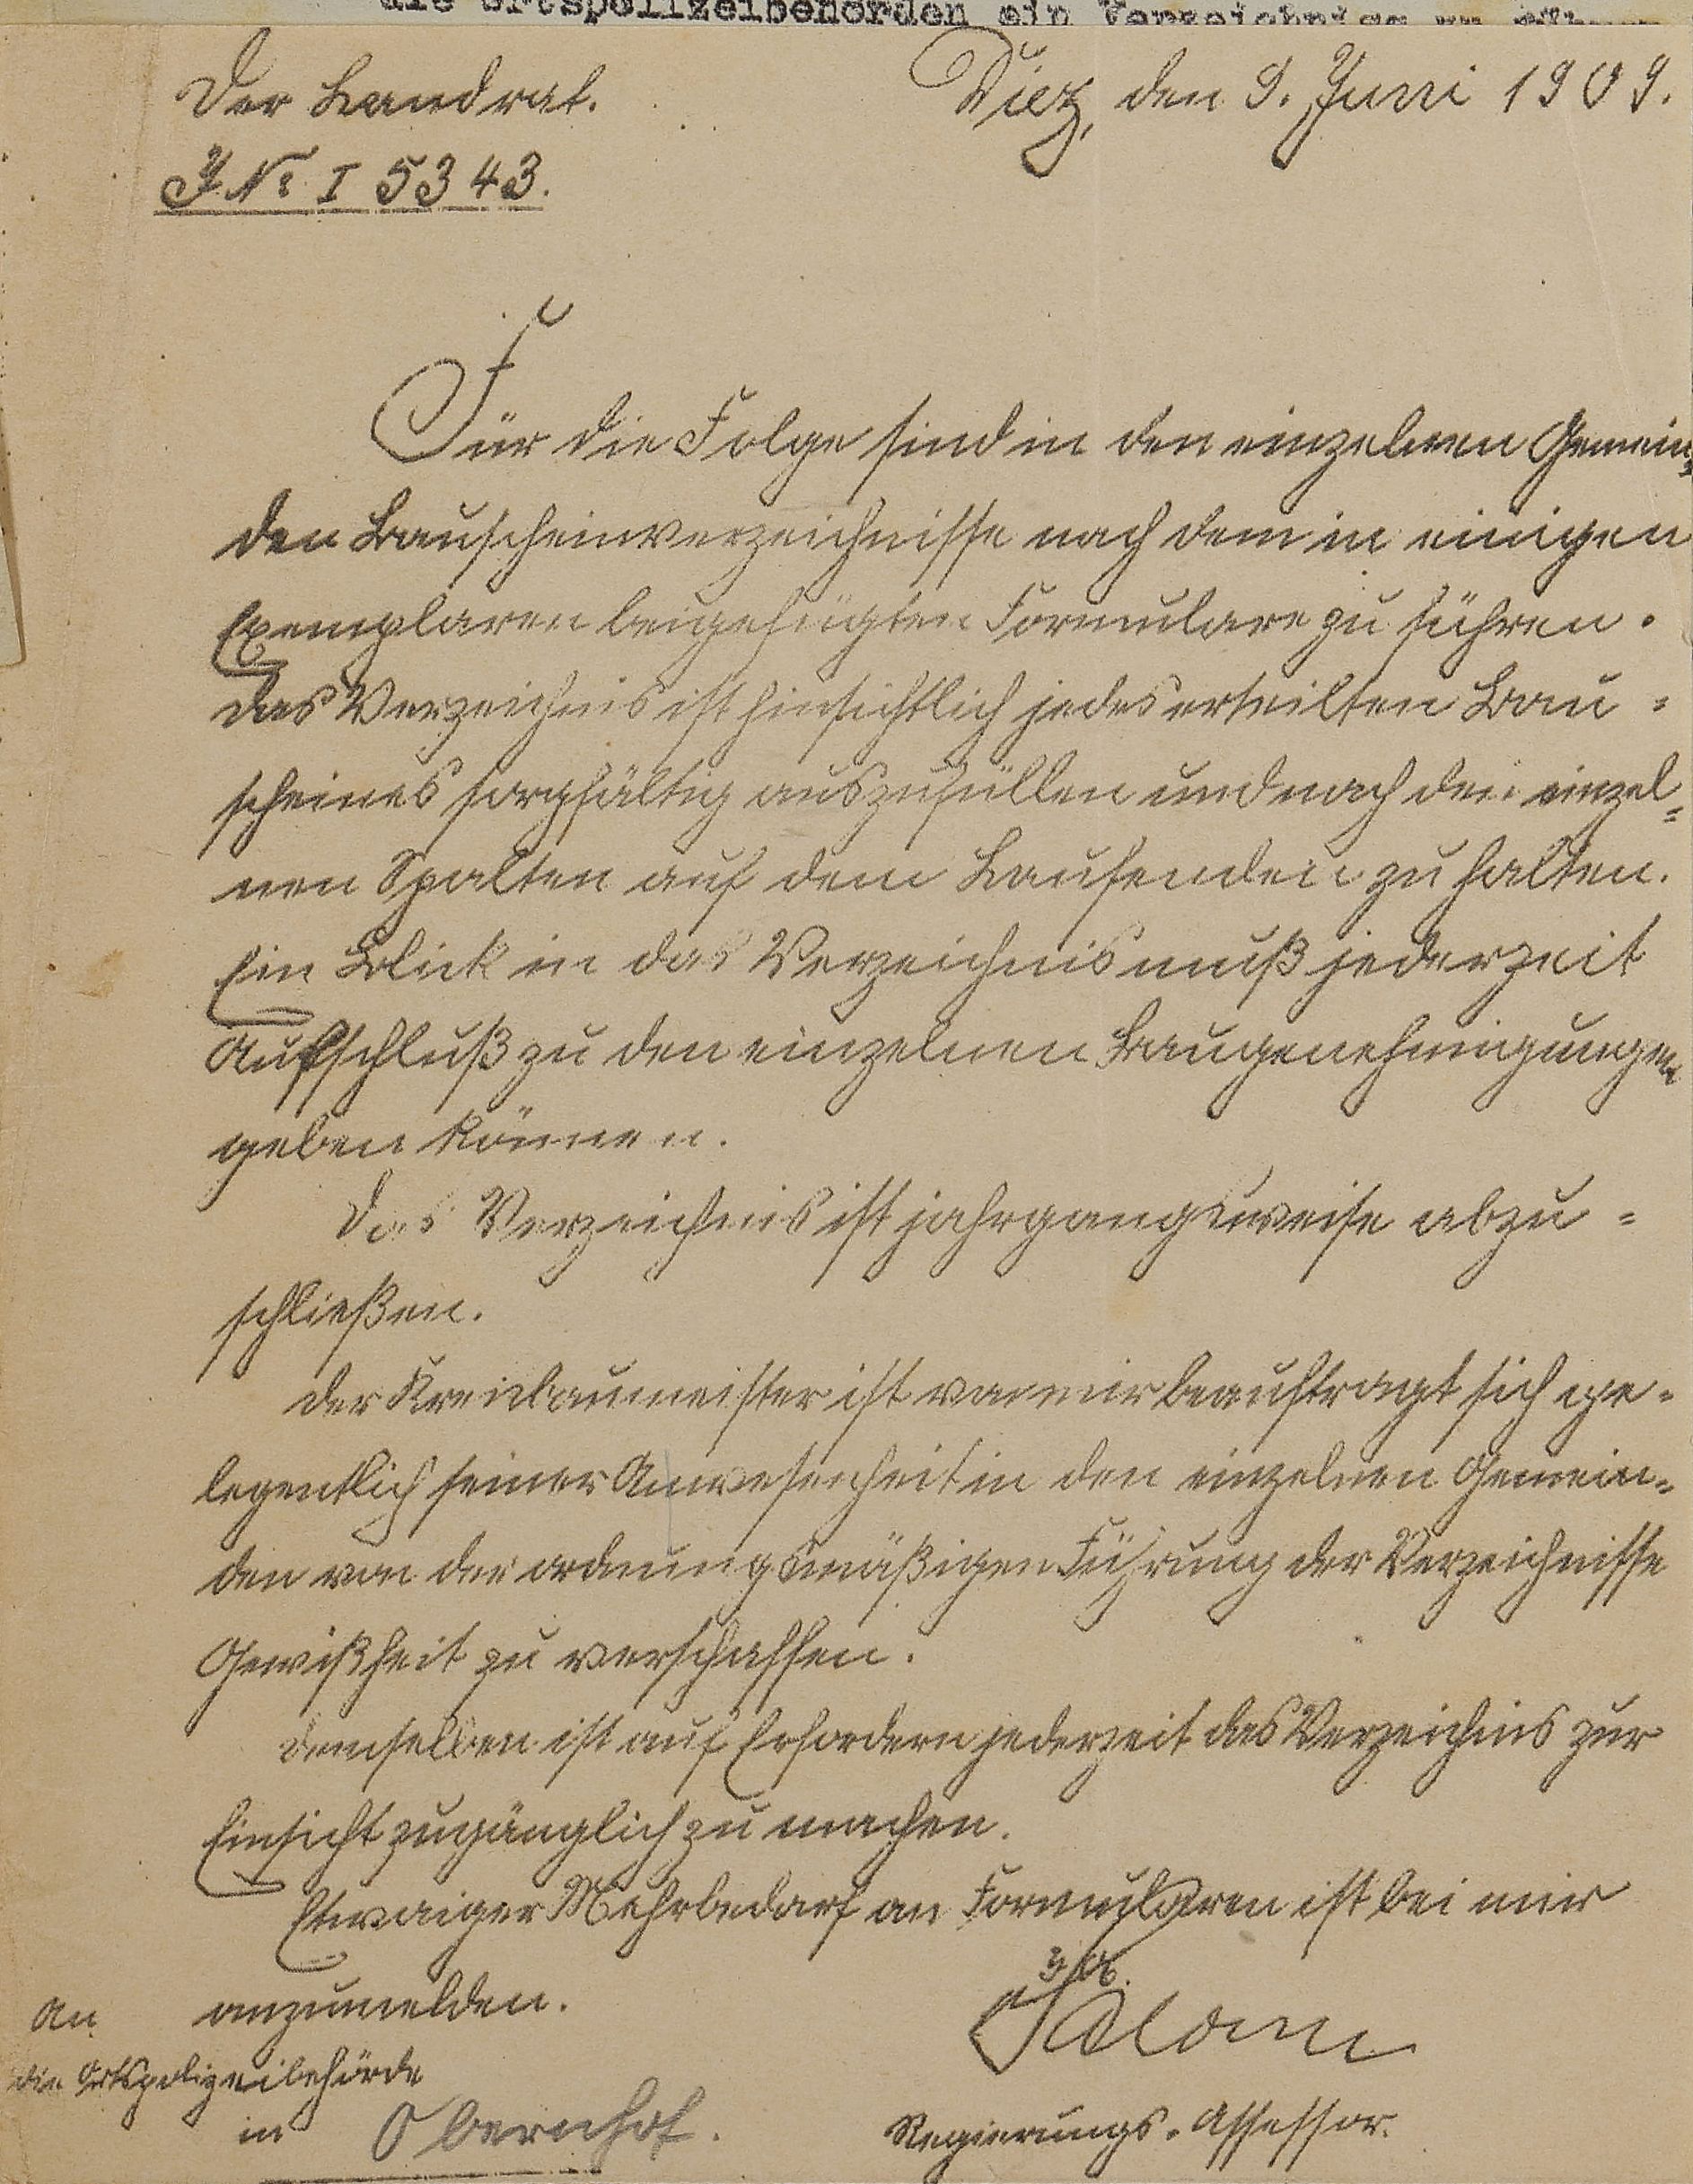 die Ortspolizeibehörden ein Verzeichniss zu führen
Der Landrat.
Diez, den 9. Juni 1909.
J. No I 5343.
Für die Folge sind in den einzelnen Gemein-
den Bauscheinverzeichnisse nach dem in einigen
Exemplaren beigefügten Formulare zu führen.
Das Verzeichnis ist hinsichtlich jedes erteilten Bau-
scheines sorgfältig auszufüllen und nach den einzel-
nen Spalten auf dem Laufenden zu halten.
Ein Blick in das Verzeichnis muß jederzeit
Aufschluß zu den einzelnen Baugenehmigungen
geben können.
Das Verzeichnis ist jahrgangsweise abzu-
schließen.
Der Kreisbaumeister ist von mir beauftragt sich ge-
legentlich seiner Anwesenheit in den einzelnen Gemein-
den von der ordnungsmäßigen Führung der Verzeichnisse
Gewißheit zu verschaffen.
Demselben ist auf Erfordern jederzeit das Verzeichnis zur
Einsicht zugänglich zu machen.
Etwaiger Mehrbedarf an Formularen ist bei mir
anzumelden.
An
die Ortspolizeibehörde
in Obernhof.
Regierungs-Assessor.